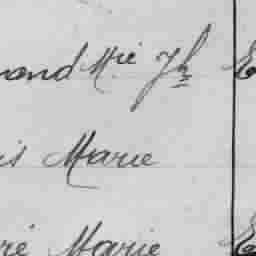 mand Mie Jh
is Marie
ré Marie